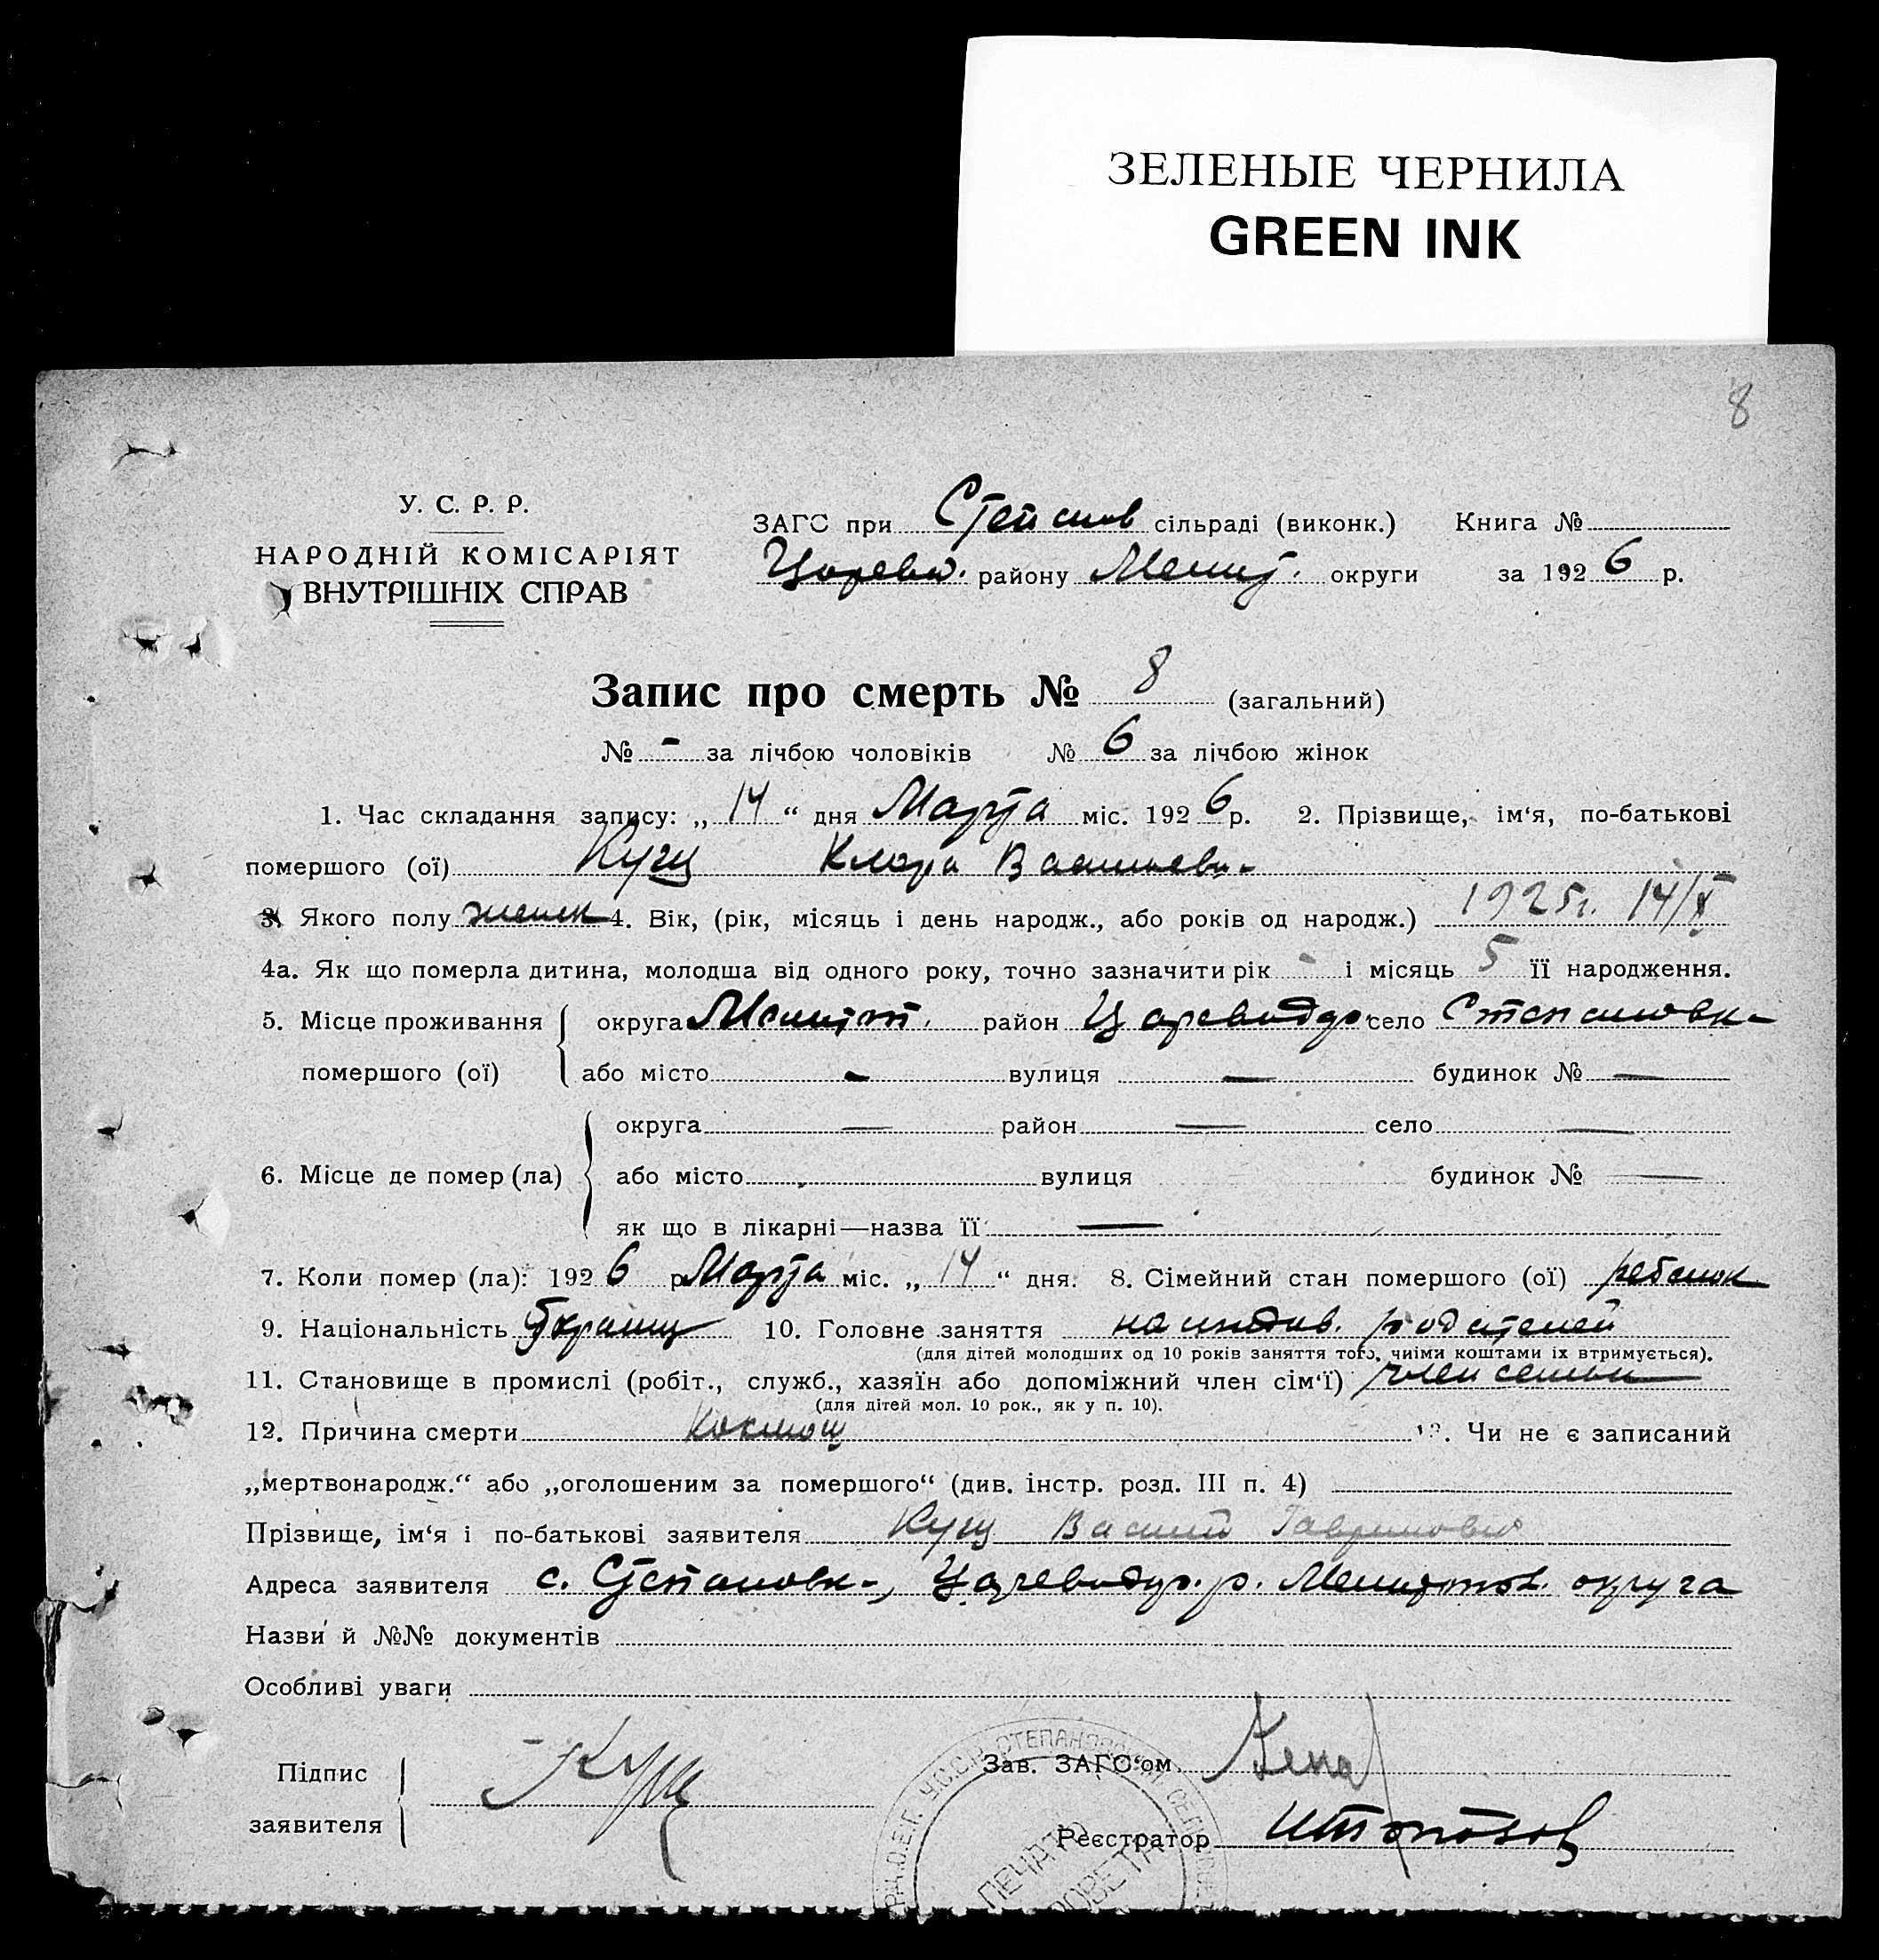 ЗЕЛЕНЫЕ ЧЕРНИЛА
GREEN INK
8
У. С. Р. Р.
НАРОДНІЙ КОМІСАРІЯТ
ВНУТРІШНІХ СПРАВ
ЗАГС при Степанов сільраді (виконк.) Книга №
Царево. району Мелит. округи за 1926 р.
Запис про смерть № 8 (загальний)
№ - за лічбою чоловіків № 6 за лічбою жінок
1. Час складання запису: „14“ дня Марта міс. 1926 р. 2. Прізвище, ім‘я, по-батькові
помершого (ої) Кущ Клара Васильев-
3. Якого полу женск 4. Вік, (рік, місяць і день народж., або років од народж.) 1925г. 14/X
4а. Як що померла дитина, молодша від одного року, точно зазначити рік - і місяць 5 її народження.
5. Місце проживання округа Мелитоп. район Цареводар село Степановк-
помершого (ої) або місто — вулиця — будинок № —
округа — район — село —
6. Місце де помер (ла) або місто вулиця будинок № —
як що в лікарні—назва її —
7. Коли помер (ла): 1926 р Марта міс. „14“ дня. 8. Сімейний стан помершого (ої) ребенок
9. Національність Украинц 10. Головне заняття на иждив. родителей
(для дітей молодших од 10 років заняття того, чиїми коштами їх втримується).
11. Становище в промислі (робіт., служб., хазяїн або допоміжний член сім‘ї) член семьи
(для дітей мол. 10 рок., як у п. 10).
12. Причина смерти Коклюш 13. Чи не є записаний
„мертвонародж.“ або „оголошеним за помершого“ (див. інстр. розд. III п. 4)
Прізвище, ім‘я і по-батькові заявителя Кущ Василий Гаврилович
Адреса заявителя с. Степановк-, Цареводар. р. Мелитопов. округа
Назви й №№ документів
Особливі уваги
Підпис Кущ Зав. ЗАГС‘ом
заявителя Реєстратор
У.С.С.Р. СТЕПАНОВ
ПЕЧАТЬ